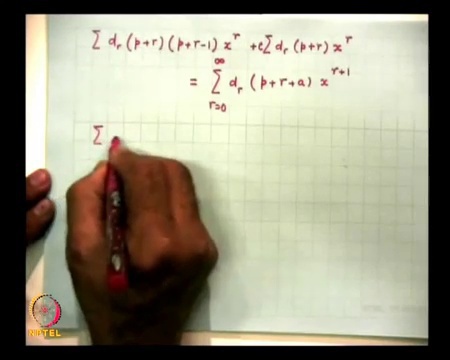 Σ d_r (p+r) (p+r-1) x^r + c Σ d_r (p+r) x^r
= Σ_{r=0}^{∞} d_r (p+r+a) x^{r+1}
Σ
NPTEL